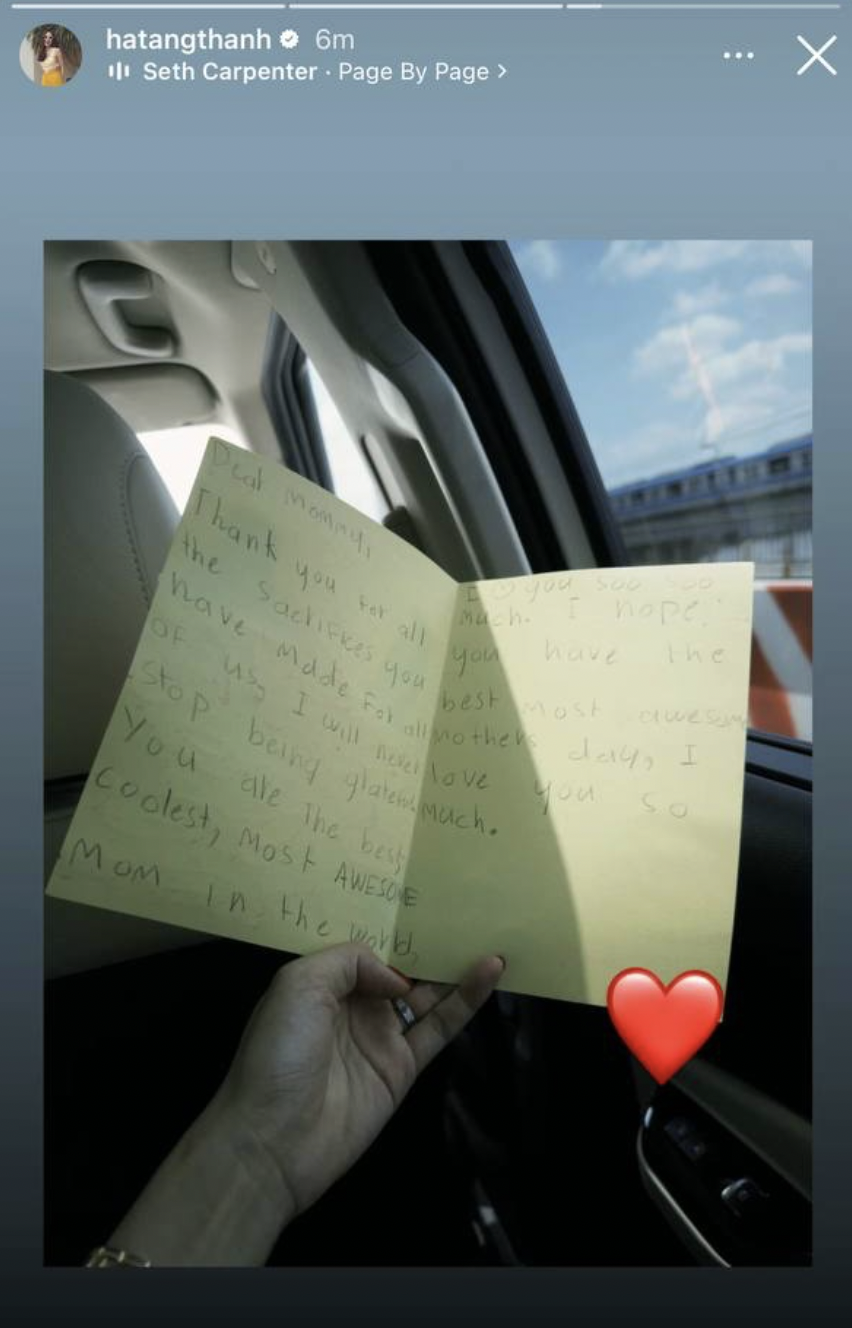 hatangthanh 6m
Seth Carpenter · Page By Page >
Dear Mommy,
Thank you for all
the sacrifices you
have made for all
of us, I will never
stop being grateful.
You are the best,
coolest, most AWESOME
Mom in the world,
I ♡ you soo soo
much. I hope
you have the
best most awesome
mothers day, I
love you so
much.